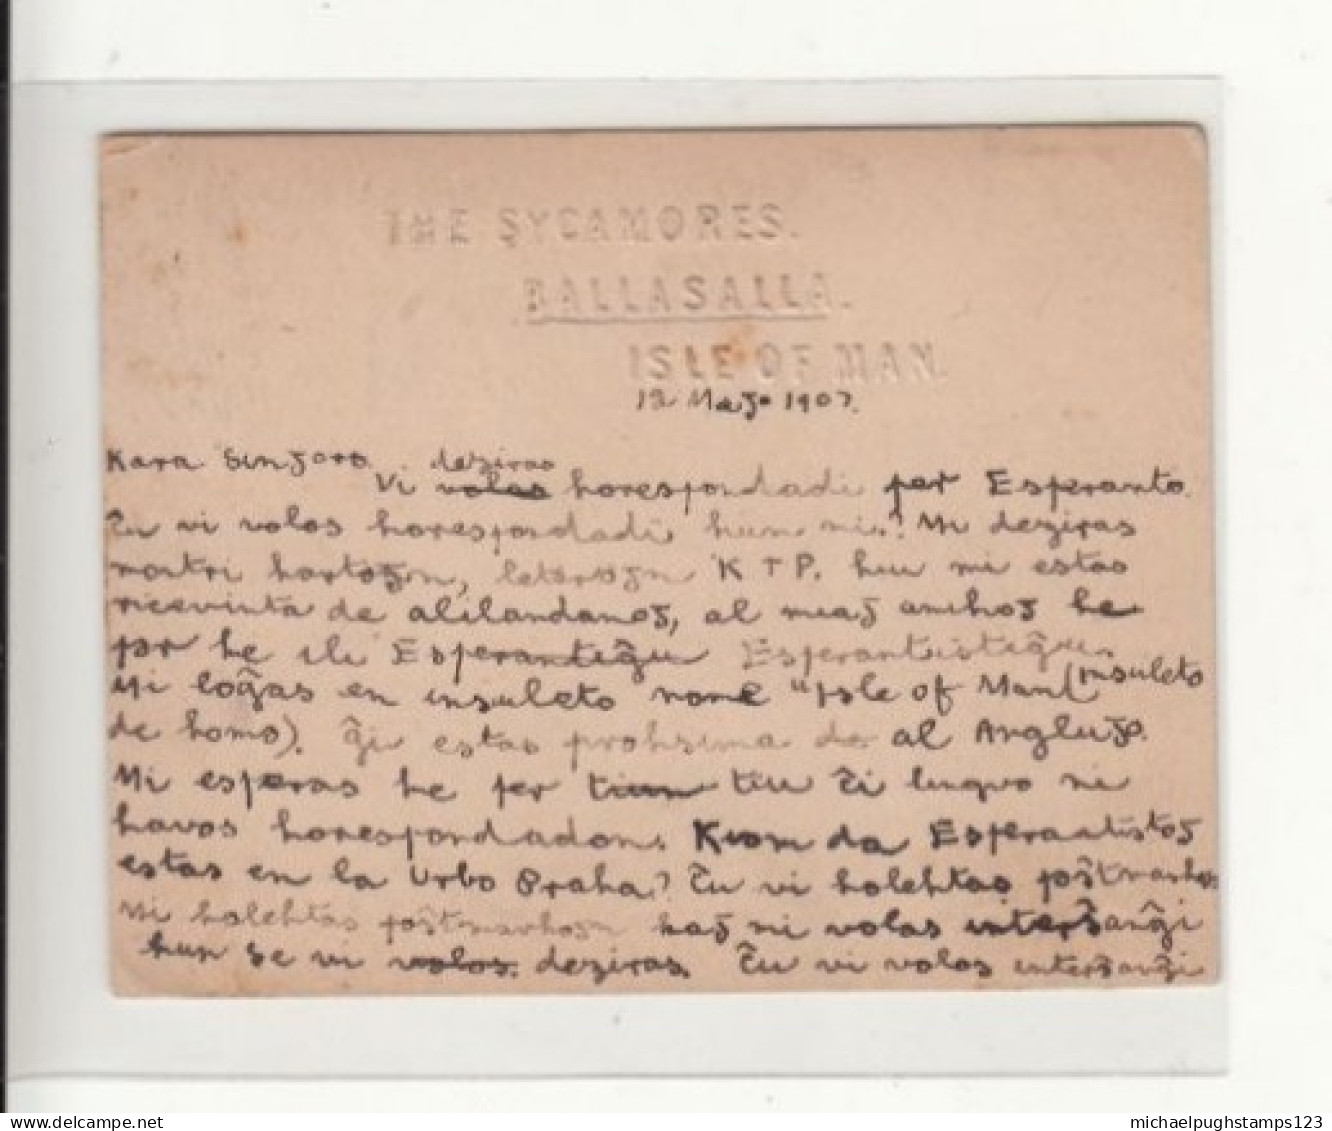 THE SYCAMORES.
BALLASALLA.
ISLE OF MAN.
12 Majo 1907.
Kara Sinjoro. deziras
Vi volas korespondadi per Esperanto.
Ĉu vi volos korespondadi kun mi? Mi deziras
montri kartojn, leterojn K T P. kiu mi estas
ricevinta de alilandanoj, al miaj amikoj ke
por ke ili Esperantiĝu Esperantistiĝu.
Mi loĝas en insuleto nome "Isle of Man (insuleto
de homo). Ĝi estas proksima de al Anglujo.
Mi esperas ke per tiun tiu ĉi lingvo ni
havos korespondadon. Kiom da Esperantistoj
estas en la Urbo Praha? Ĉu vi kolektas poŝtmarkojn
Mi kolektas poŝtmarkojn kaj mi volas interŝanĝi
kun se vi volos deziras. Ĉu vi volos interŝanĝi
michaelpughstamps123